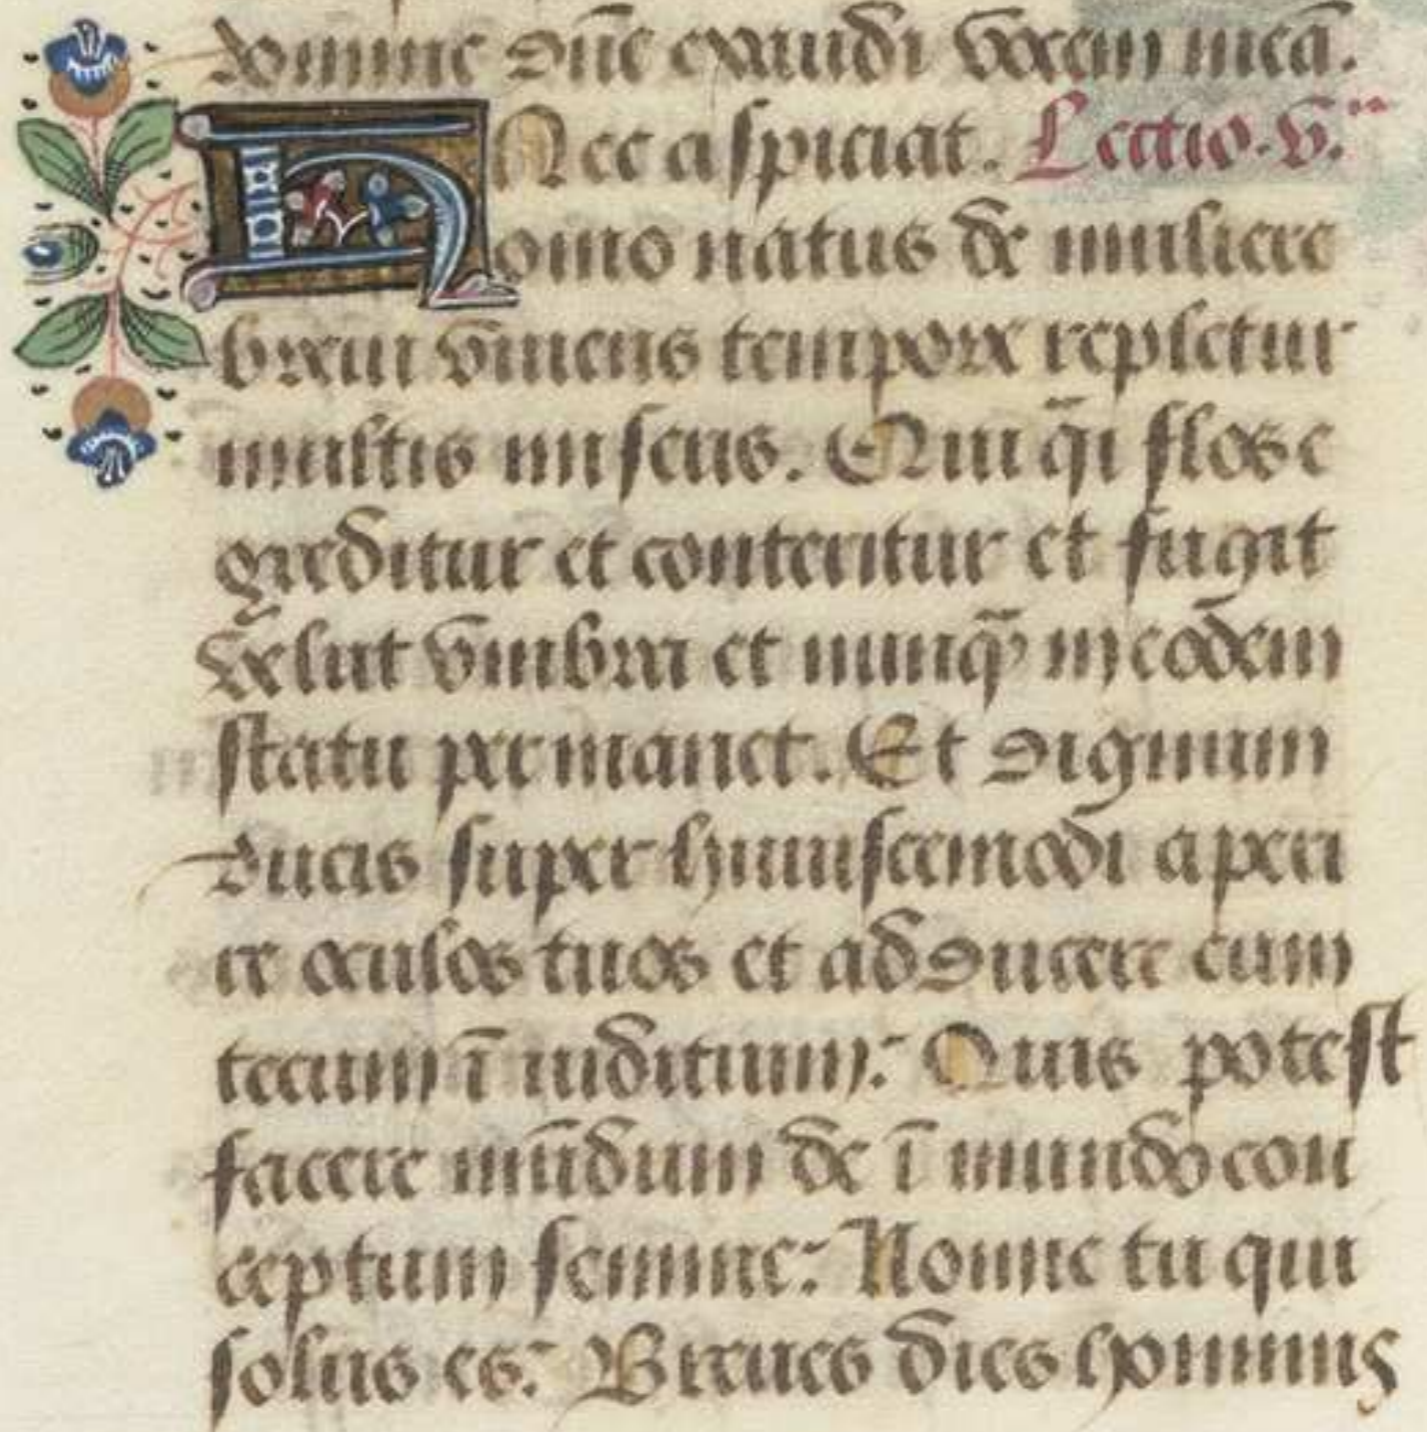 domine dn̄e exaudi vocem meā.
Nec aspiciat. Lectio .v.ᵃ
Homo natus de muliere
breui viuens tempore repletur
multis miserijs. Qui q̄i flos e
greditur et conteritur et fugit
velut vmbra et nunq̄ in eodem
statu permanet. Et dignum
ducis super huiuscemodi aperi
re oculos tuos et adducere eum
tecum ī iuditium: Quis potest
facere mūdum de ī mundo con
ceptum semine: Nonne tu qui
solus es: Breues dies hominis